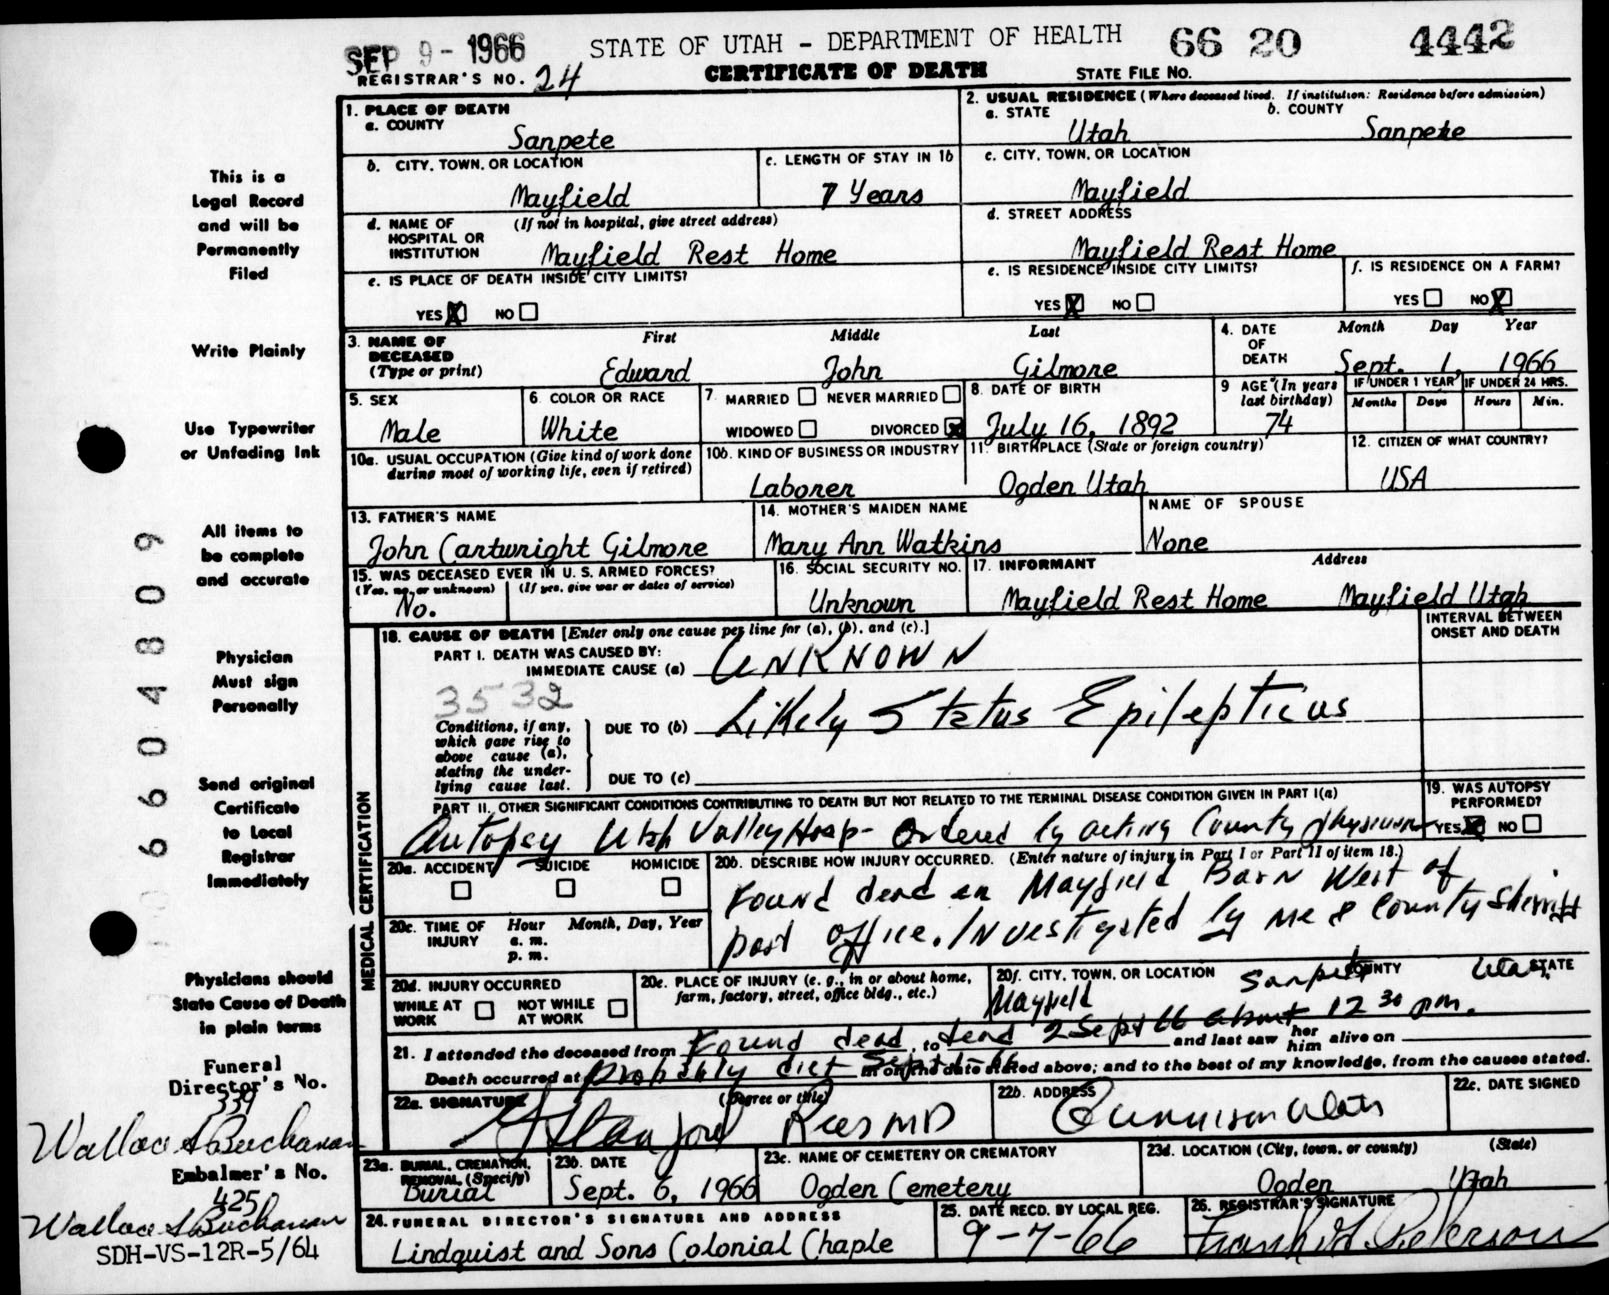 SEP 9 - 1966 STATE OF UTAH - DEPARTMENT OF HEALTH 66 20 4442
REGISTRAR'S NO. 24 CERTIFICATE OF DEATH STATE FILE No.
1. PLACE OF DEATH
a. COUNTY
Sanpete
2. USUAL RESIDENCE (Where deceased lived. If institution: Residence before admission)
a. STATE b. COUNTY
Utah Sanpete
b. CITY, TOWN, OR LOCATION c. LENGTH OF STAY IN 1b
Mayfield 7 Years
c. CITY, TOWN, OR LOCATION
Mayfield
d. NAME OF HOSPITAL OR INSTITUTION (If not in hospital, give street address)
Mayfield Rest Home
d. STREET ADDRESS
Mayfield Rest Home
e. IS PLACE OF DEATH INSIDE CITY LIMITS?
YES X NO
e. IS RESIDENCE INSIDE CITY LIMITS? f. IS RESIDENCE ON A FARM?
YES X NO YES NO X
3. NAME OF DECEASED (Type or print) First Middle Last
Edward John Gilmore
4. DATE OF DEATH Month Day Year
Sept. 1, 1966
5. SEX
Male
6. COLOR OR RACE
White
7. MARRIED NEVER MARRIED
WIDOWED DIVORCED X
8. DATE OF BIRTH
July 16, 1892
9 AGE (In years last birthday)
74
IF UNDER 1 YEAR IF UNDER 24 HRS.
Months Days Hours Min.
10a. USUAL OCCUPATION (Give kind of work done during most of working life, even if retired)
10b. KIND OF BUSINESS OR INDUSTRY
Laborer
11. BIRTHPLACE (State or foreign country)
Ogden Utah
12. CITIZEN OF WHAT COUNTRY?
USA
13. FATHER'S NAME
John Cartwright Gilmore
14. MOTHER'S MAIDEN NAME
Mary Ann Watkins
NAME OF SPOUSE
None
15. WAS DECEASED EVER IN U. S. ARMED FORCES?
(Yes, no, or unknown) (If yes, give war or dates of service)
No.
16. SOCIAL SECURITY NO.
Unknown
17. INFORMANT Address
Mayfield Rest Home Mayfield Utah
18. CAUSE OF DEATH [Enter only one cause per line for (a), (b), and (c).]
INTERVAL BETWEEN ONSET AND DEATH
PART I. DEATH WAS CAUSED BY:
IMMEDIATE CAUSE (a) UNKNOWN
3532
Conditions, if any, which gave rise to above cause (a), stating the underlying cause last.
DUE TO (b) Likely Status Epilepticus
DUE TO (c)
PART II. OTHER SIGNIFICANT CONDITIONS CONTRIBUTING TO DEATH BUT NOT RELATED TO THE TERMINAL DISEASE CONDITION GIVEN IN PART I(a)
Autopsy Utah Valley Hosp- Ordered by acting County physician
19. WAS AUTOPSY PERFORMED?
YES X NO
20a. ACCIDENT SUICIDE HOMICIDE
20b. DESCRIBE HOW INJURY OCCURRED. (Enter nature of injury in Part I or Part II of item 18.)
Found dead in Mayfield Barn West of
post office. Investigated by me & County Sherriff
20c. TIME OF INJURY Hour Month, Day, Year
a. m.
p. m.
20d. INJURY OCCURRED
WHILE AT WORK NOT WHILE AT WORK
20e. PLACE OF INJURY (e. g., in or about home, farm, factory, street, office bldg., etc.)
20f. CITY, TOWN, OR LOCATION COUNTY STATE
Mayfield Sanpete Utah
21. I attended the deceased from Found dead, to dead 2 Sept 66 about 12 30 pm. and last saw her him alive on
Death occurred at probably died Sept 1-66 m on the date stated above; and to the best of my knowledge, from the causes stated.
22a. SIGNATURE (Degree or title)
Stanford Rees MD
22b. ADDRESS
Gunnison Utah
22c. DATE SIGNED
23a. BURIAL, CREMATION, REMOVAL, (Specify)
Burial
23b. DATE
Sept. 6, 1966
23c. NAME OF CEMETERY OR CREMATORY
Ogden Cemetery
23d. LOCATION (City, town, or county) (State)
Ogden Utah
24. FUNERAL DIRECTOR'S SIGNATURE AND ADDRESS
Lindquist and Sons Colonial Chaple
25. DATE RECD. BY LOCAL REG.
9-7-66
26. REGISTRAR'S SIGNATURE
Peterson
MEDICAL CERTIFICATION
This is a
Legal Record
and will be
Permanently
Filed
Write Plainly
Use Typewriter
or Unfading Ink
All items to
be complete
and accurate
Physician
Must sign
Personally
Send original
Certificate
to Local
Registrar
Immediately
Physicians should
State Cause of Death
in plain terms
Funeral
Director's No.
339
Wallace S Buchanan
Embalmer's No.
4250
Wallace S Buchanan
SDH-VS-12R-5/64
6604809